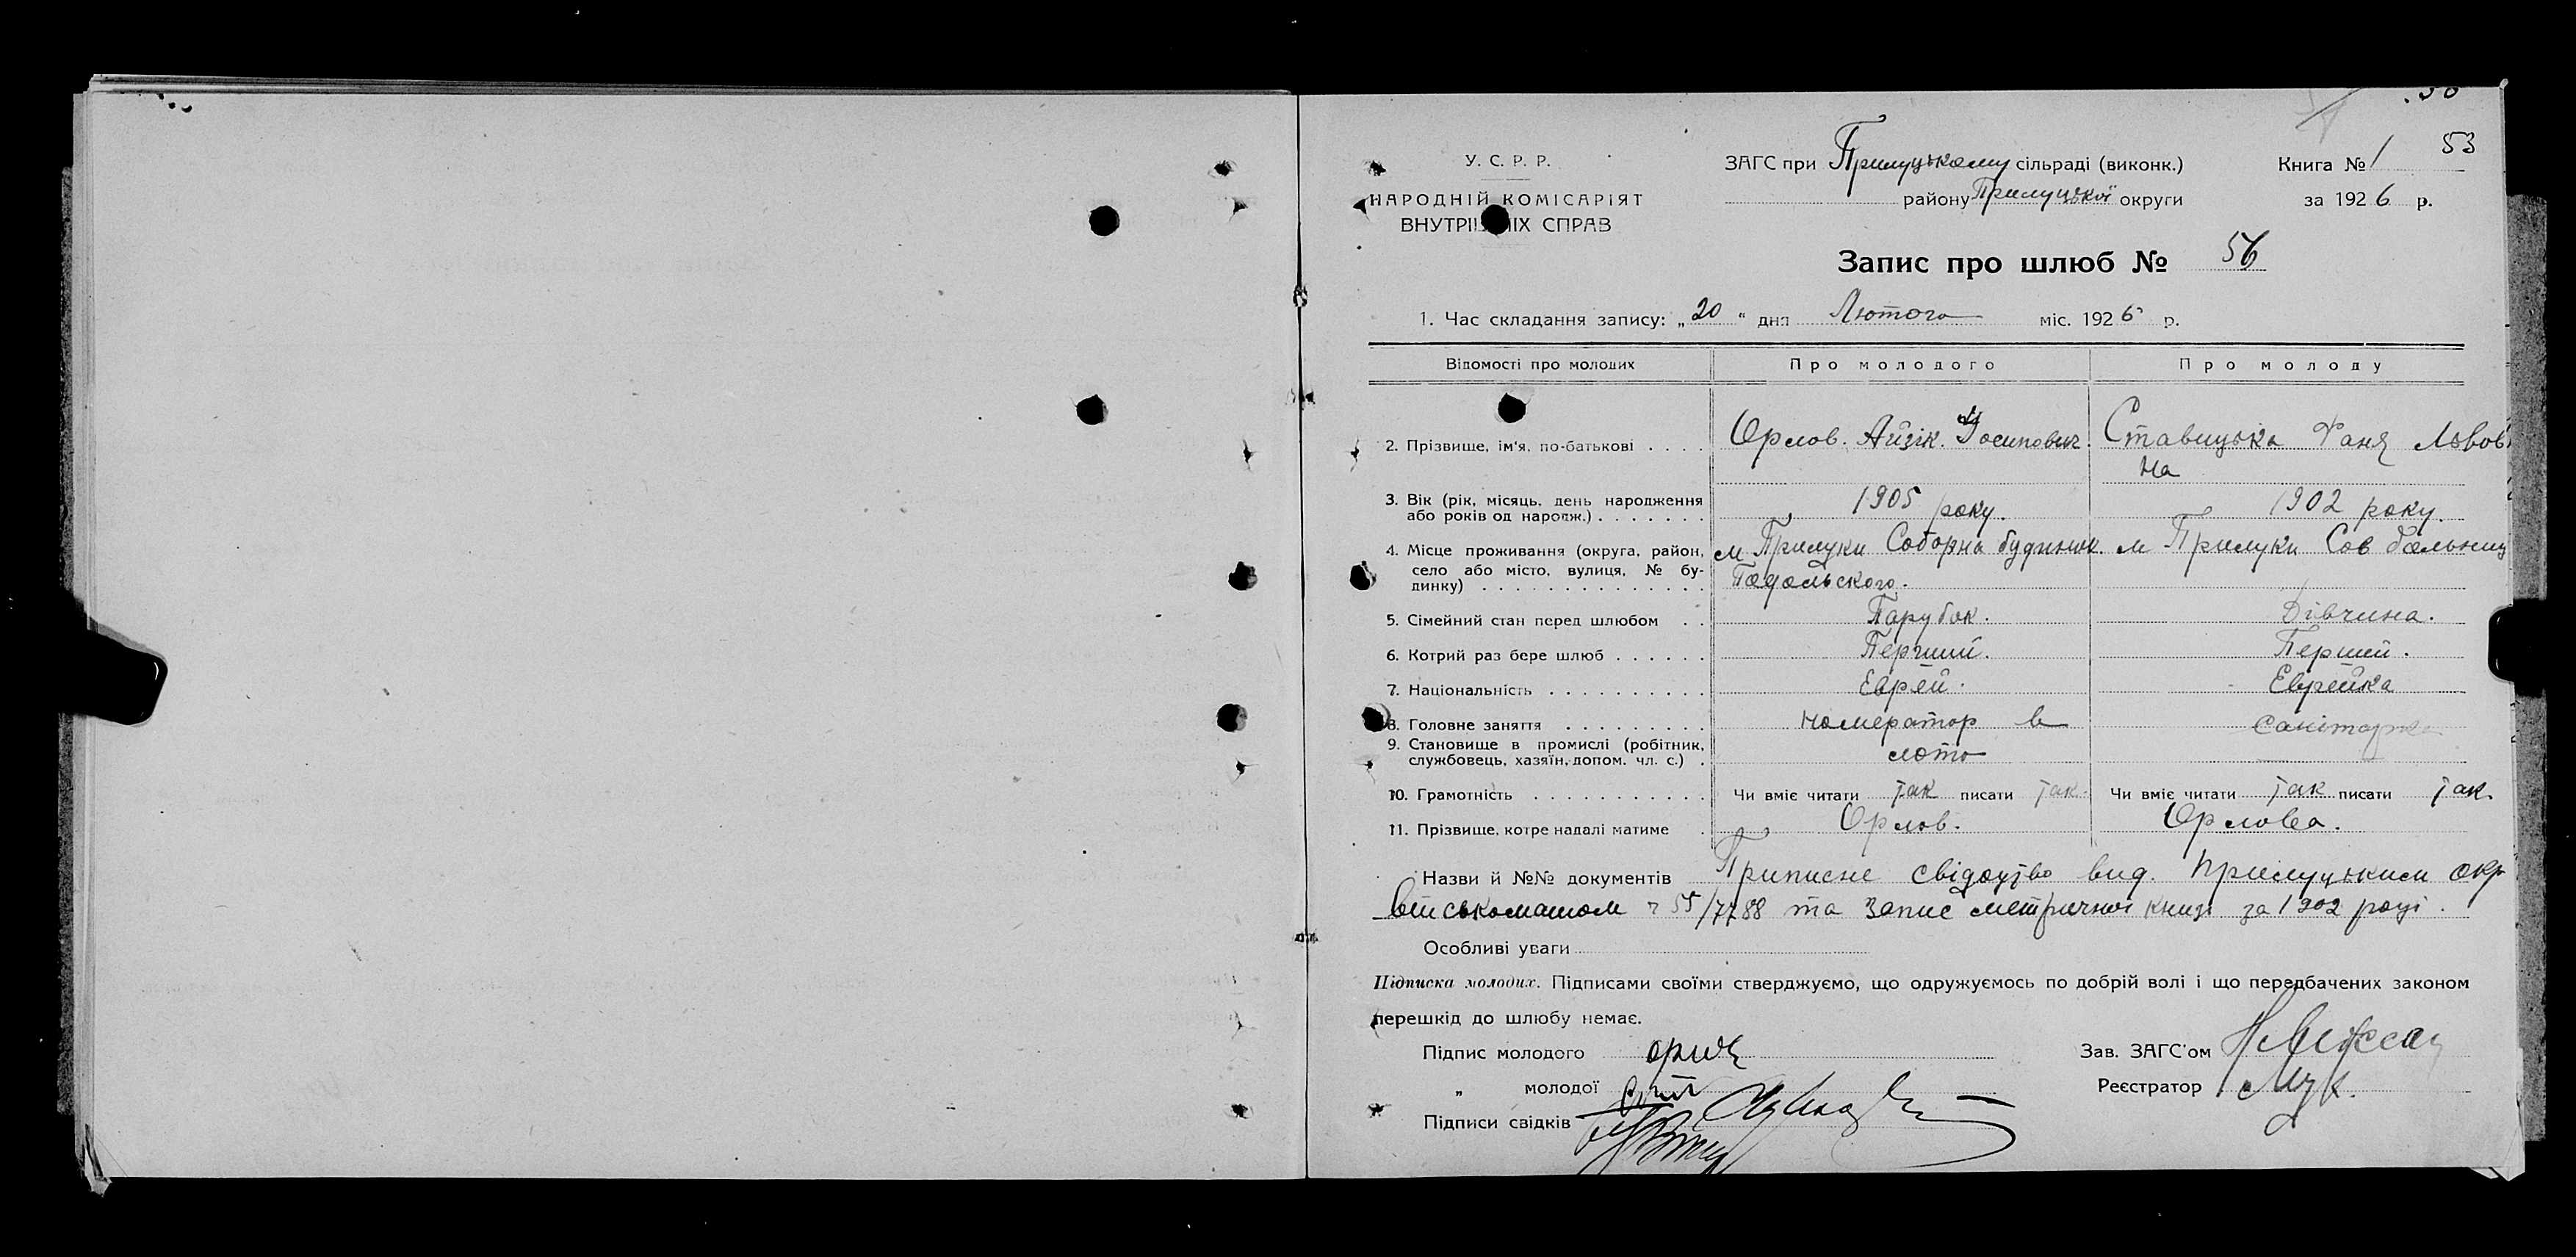 53
У. С. Р. Р.
ЗАГС при Прилуцькому сільраді (виконк.)
Книга № 1
НАРОДНІЙ КОМІСАРІЯТ
району Прилуцької округи
за 1926 р.
ВНУТРІШНІХ СПРАВ
Запис про шлюб № 56
1. Час складання запису: „20“ дня Лютого міс. 1926 р.
Відомості про молодих Про молодого Про молоду
2. Прізвище, ім'я, по-батькові . . . . Орлов. Айзік. Йосипович. Ставицька Фаня Львов
на
3. Вік (рік, місяць, день народження 1905 року. 1902 року.
або років од народж.) . . . . . . .
4. Місце проживання (округа, район, м Прилуки Соборна будинок. м Прилуки Сов больниц
село або місто, вулиця, № бу- Подольского.
динку) . . . . . . . . . . . . . .
5. Сімейний стан перед шлюбом . . Парубок. Дівчина.
6. Котрий раз бере шлюб . . . . . . Перший. Перший.
7. Національність . . . . . . . . . . Еврей. Еврейка
8. Головне заняття . . . . . . . . . номератор в санітарка
9. Становище в промислі (робітник, лото
службовець, хазяїн, допом. чл. с.) .
10. Грамотність . . . . . . . . . . . Чи вміє читати так писати так. Чи вміє читати так писати так.
11. Прізвище, котре надалі матиме . Орлов. Орлова.
Назви й №№ документів Приписне свідоцтво вид. Прилуцьким окр
військоматом ч 55/7788 та Запис метричної книзі за 1902 році.
Особливі уваги
Підписка молодих. Підписами своїми стверджуємо, що одружуємось по добрій волі і що передбачених законом
перешкід до шлюбу немає.
Підпис молодого
Зав. ЗАГС'ом
„ молодої
Реєстратор
Підписи свідків